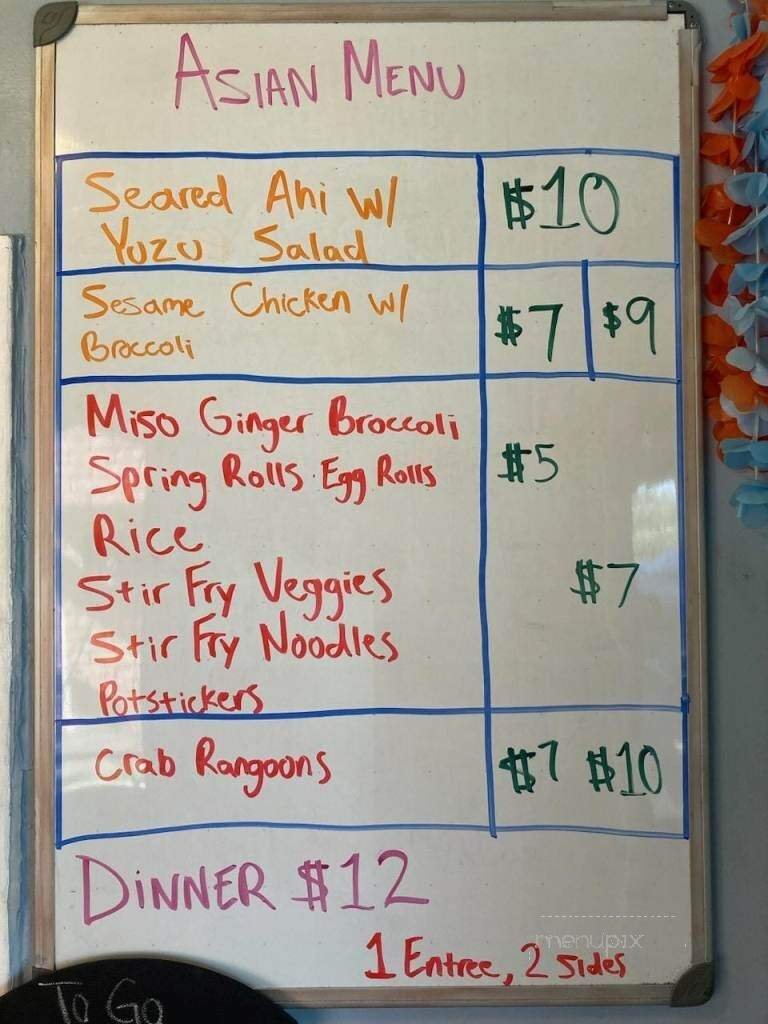 ASIAN MENU
Seared Ahi w/ $10
Yuzu Salad
Sesame Chicken w/ $7 $9
Broccoli
Miso Ginger Broccoli
Spring Rolls Egg Rolls $5
Rice
Stir Fry Veggies $7
Stir Fry Noodles
Potstickers
Crab Rangoons $7 $10
DINNER $12
1 Entree, 2 sides
menupix
To Go